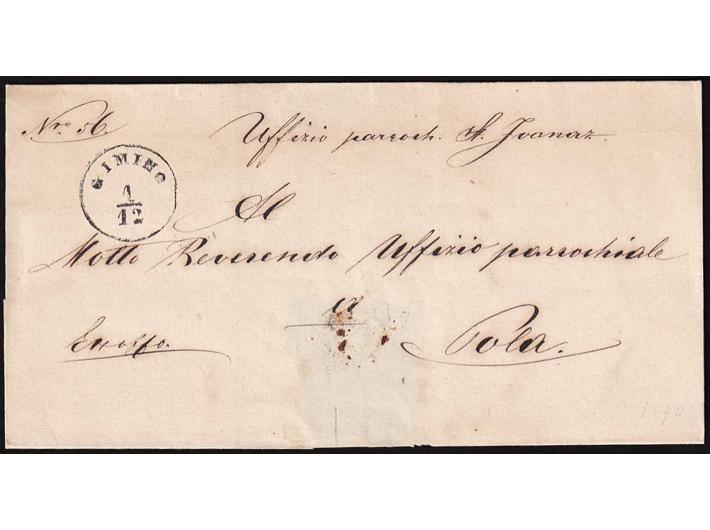 Nro. 56
Uffizio parroch. St. Ivanaz
GIMINO
1/12
Al
Molto Reverendo Uffizio parrochiale
in
Exoffo.
Pola.